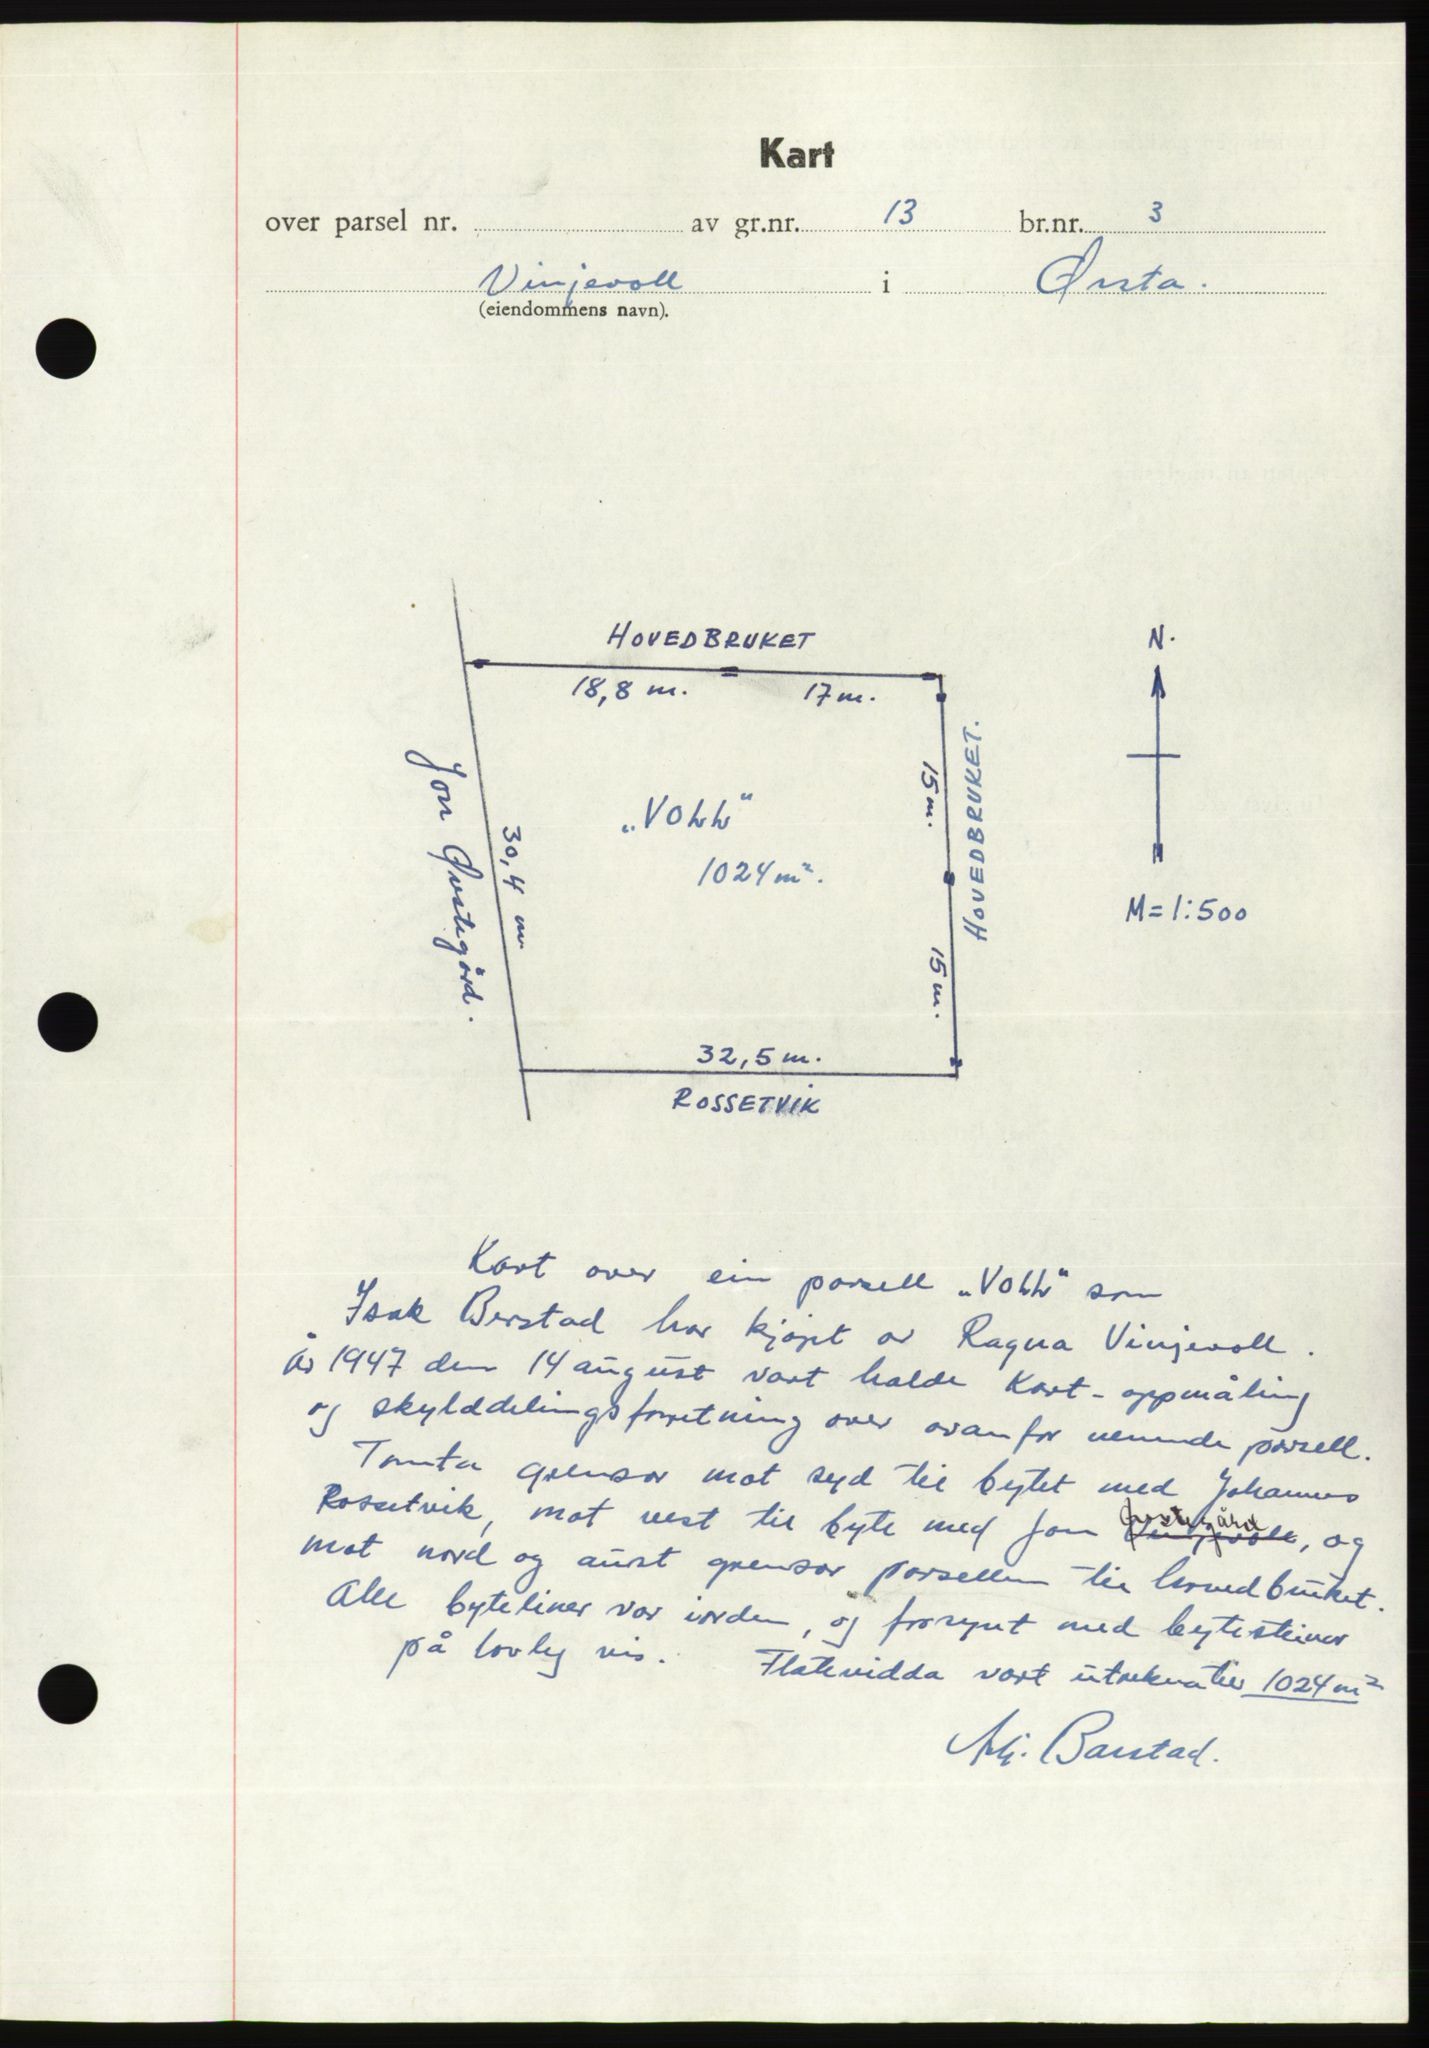 Kart
over parsel nr. av gr.nr. 13 br.nr. 3
Vinjevoll i Ørsta.
(eiendommens navn).
HOVEDBRUKET
N.
18,8 m. 17 m.
HOVEDBRUKET.
15 m.
Jon Øvstegård.
30,4 m
"VOLL"
1024 m².
M = 1:500
15 m.
32,5 m.
ROSSETVIK
Kart over ein parsell "VOLL" som
Isak Berstad har kjøpt av Ragna Vinjevoll.
År 1947 den 14 august vart halde Kart-oppmåling
og skylddelingsforretning over ovanfor nemnde parsell.
Tomta grensar mot syd til bytet med Johannes
Rossetvik, mot vest til byte med Jon Øvstegård, og
mot nord og aust grensar parsellen til hovedbruket.
Alle byteliner var iorden, og forsynt med bytesteinar
på lovleg vis. Flatevidda vart utrekna til 1024 m²
Barstad.